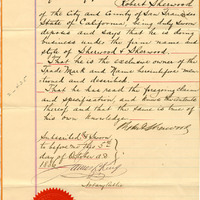 Robert Sherwood
of the City and County of San Francisco
State of California, being duly sworn
deposes and says that he is doing
business under the firm name and
style of Sherwood & Sherwood.
That he is the exclusive owner of the
Trade Mark and Name hereinbefore men-
tioned and described.
That he has read the foregoing claim
and specification, and knows the contents
thereof and that the same is true of
his own knowledge.
Robert Sherwood
Subscribed & Sworn
to before me this 5th
day of October A.D.
1886
Notary Public